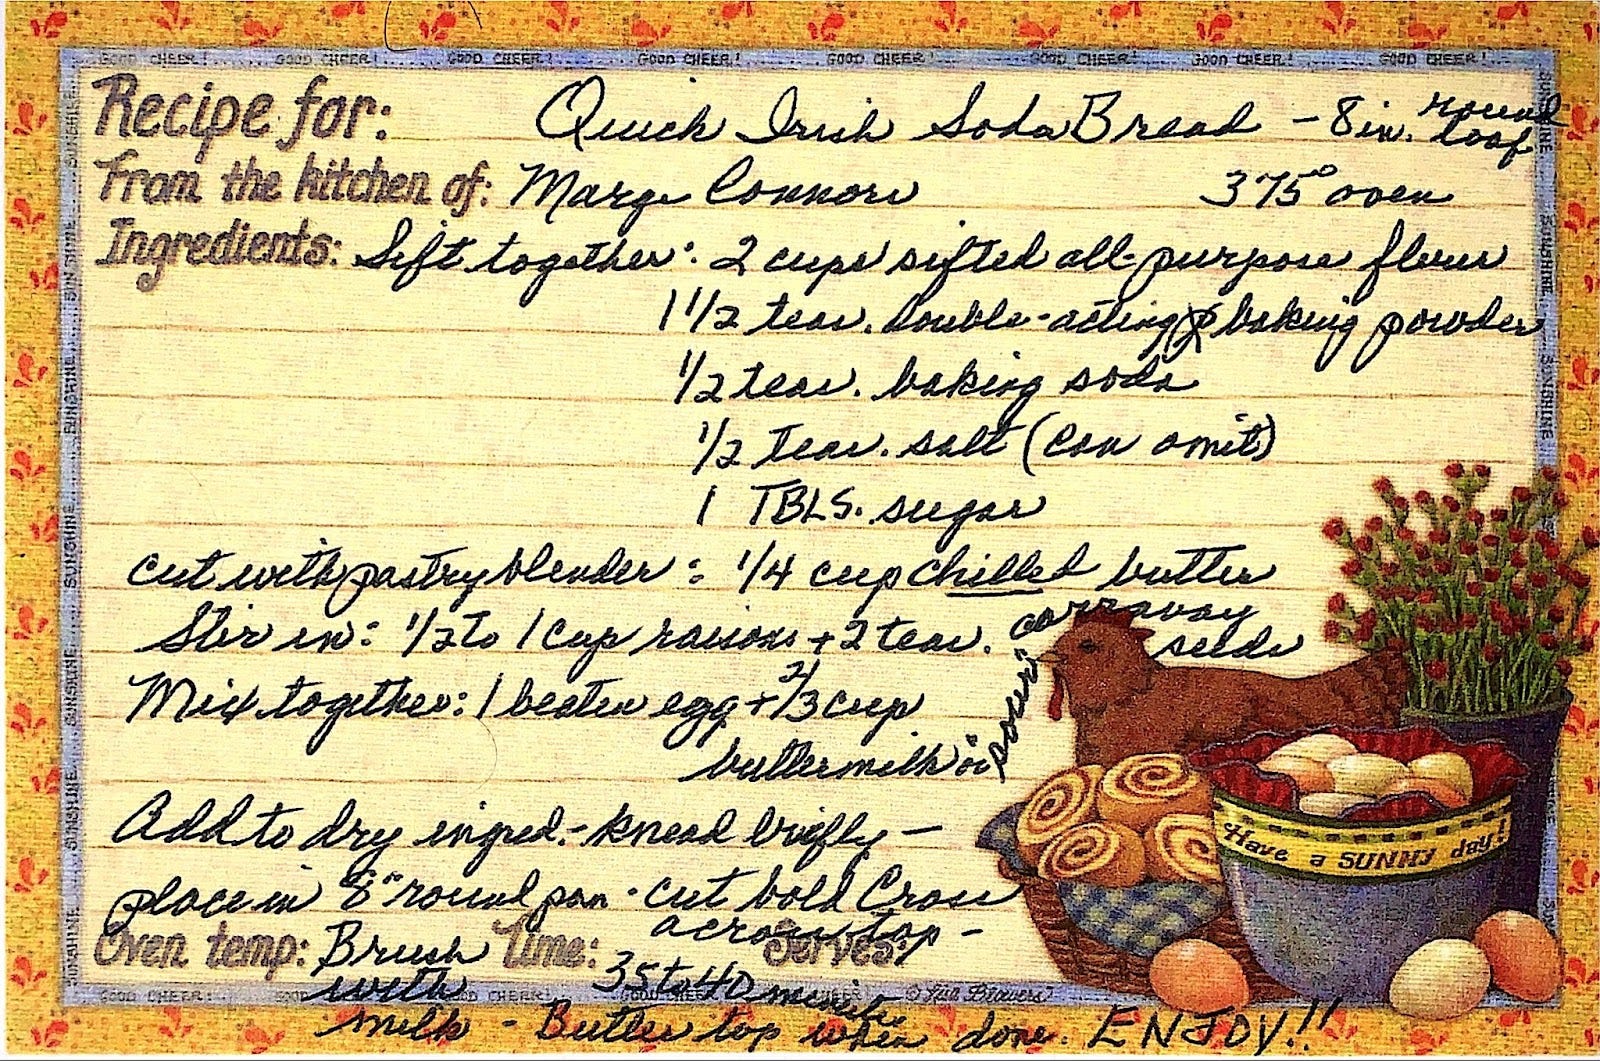 GOOD CHEER! GOOD CHEER! GOOD CHEER! GOOD CHEER! GOOD CHEER! GOOD CHEER! GOOD CHEER! GOOD CHEER!
Recipe for: Quick Irish Soda Bread - 8 in. round loaf
From the kitchen of: Marge Connors 375° oven
Ingredients: Sift together: 2 cups sifted all-purpose flour
1 1/2 teas. double-acting baking powder
1/2 teas. baking soda
1/2 teas. salt (can omit)
1 TBLS. sugar
cut with pastry blender: 1/4 cup chilled butter
Stir in: 1/2 to 1 cup raisons + 2 teas. carraway seeds
Mix together: 1 beaten egg + 2/3 cup
buttermilk or "sour"
Add to dry ingred. - knead briefly -
place in 8" round pan - cut bold Cross
across top -
Oven temp: Brush Time: Serves:
with 35 to 40 minutes
milk - Butter top when done. ENJOY!!
Have a SUNNY day!
SUNSHINE SUNSHINE SUNSHINE